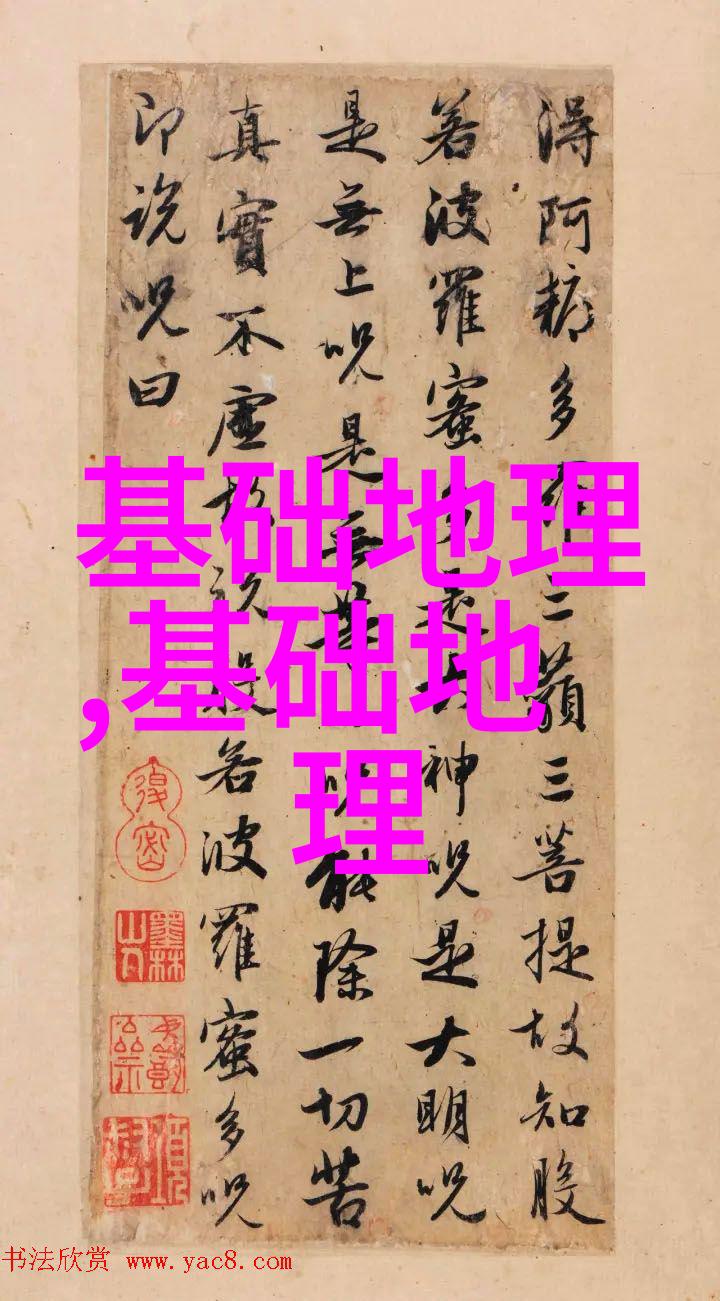 得阿耨多羅三藐三菩提故知般
若波羅蜜多是大神呪是大明呪
是無上呪是無等呪能除一切苦
真實不虛故說般若波羅蜜多呪
即說呪曰
基础地理
,基础地
理
墨林山人
书法欣赏 www.yac8.com